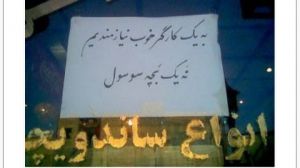 به یک کارگر خوب نیازمندیم
نه یک بچه سوسول
انواع ساندویچ